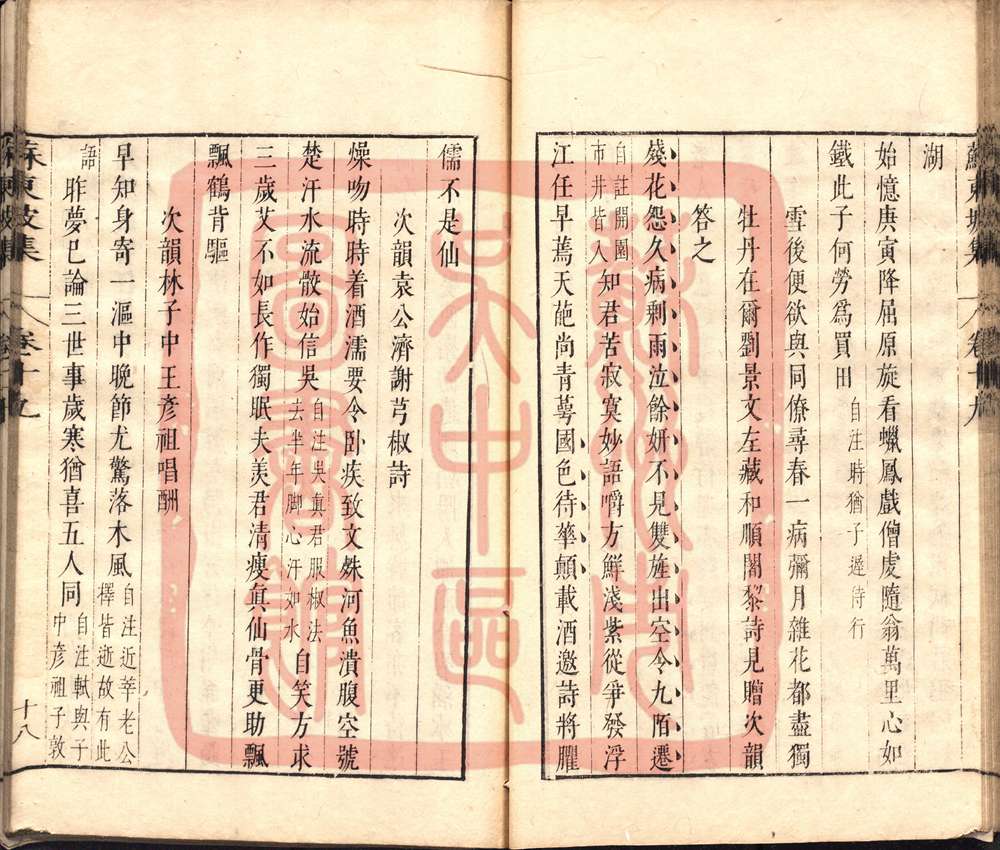 蘇東坡集 卷十九
湖
始憶庚寅降屈原旋看蠟鳳戲僧虔隨翁萬里心如
鐵此子何勞爲買田 自注時猶子遲侍行
雪後便欲與同僚尋春一病彌月雜花都盡獨
牡丹在爾劉景文左藏和順闍黎詩見贈次韻
答之
殘花怨久病剩雨泣餘妍不見雙旌出空令九陌遷
自註開園市井皆入 知君苦寂寞妙語嚼方鮮淺紫從爭發浮
江任早蔫天葩尚青萼國色待華顛載酒邀詩將臞
儒不是仙
次韻袁公濟謝芎椒詩
燥吻時時着酒濡要令卧疾致文殊河魚潰腹空號
楚汗水流骰始信吳 自注吳眞君服椒法去半年脚心汗如水 自笑方求
三歲艾不如長作獨眠夫羨君清瘦眞仙骨更助飄
飄鶴背驅
次韻林子中王彦祖唱酬
早知身寄一漚中晚節尤驚落木風 自注近莘老公擇皆逝故有此
語 昨夢已論三世事歲寒猶喜五人同 自注軾與子中彦祖子敦
蘇東坡集 卷十九 十八